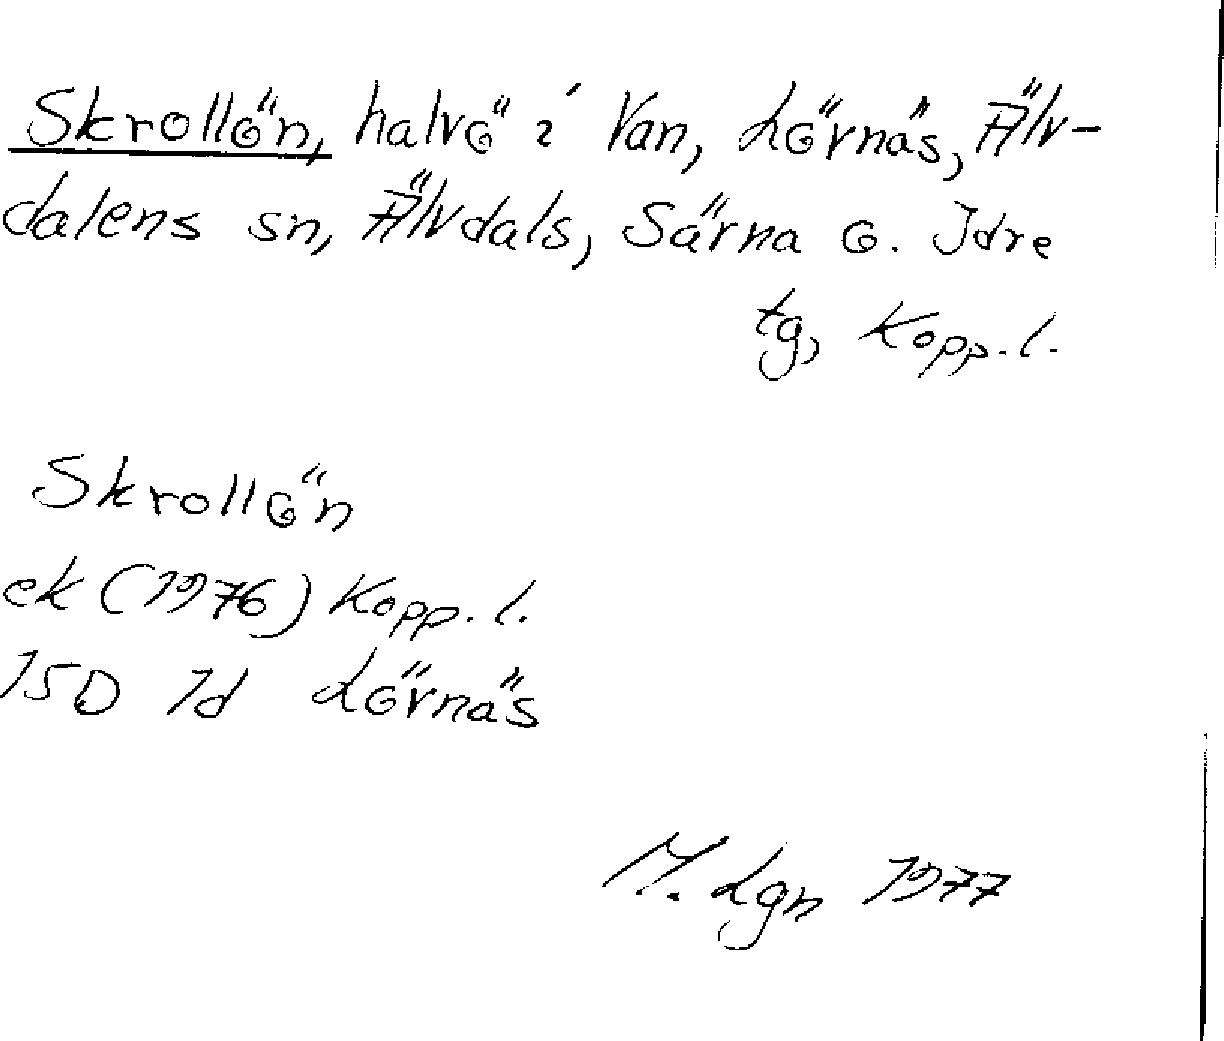 Skrollön, halvö i Van, Lövnäs, Älv-
dalens sn, Älvdals, Särna o. Idre
tg, Kopp. l.
Skrollön
ek (1976) Kopp. l.
15D 1d Lövnäs
M. Lgn 1977